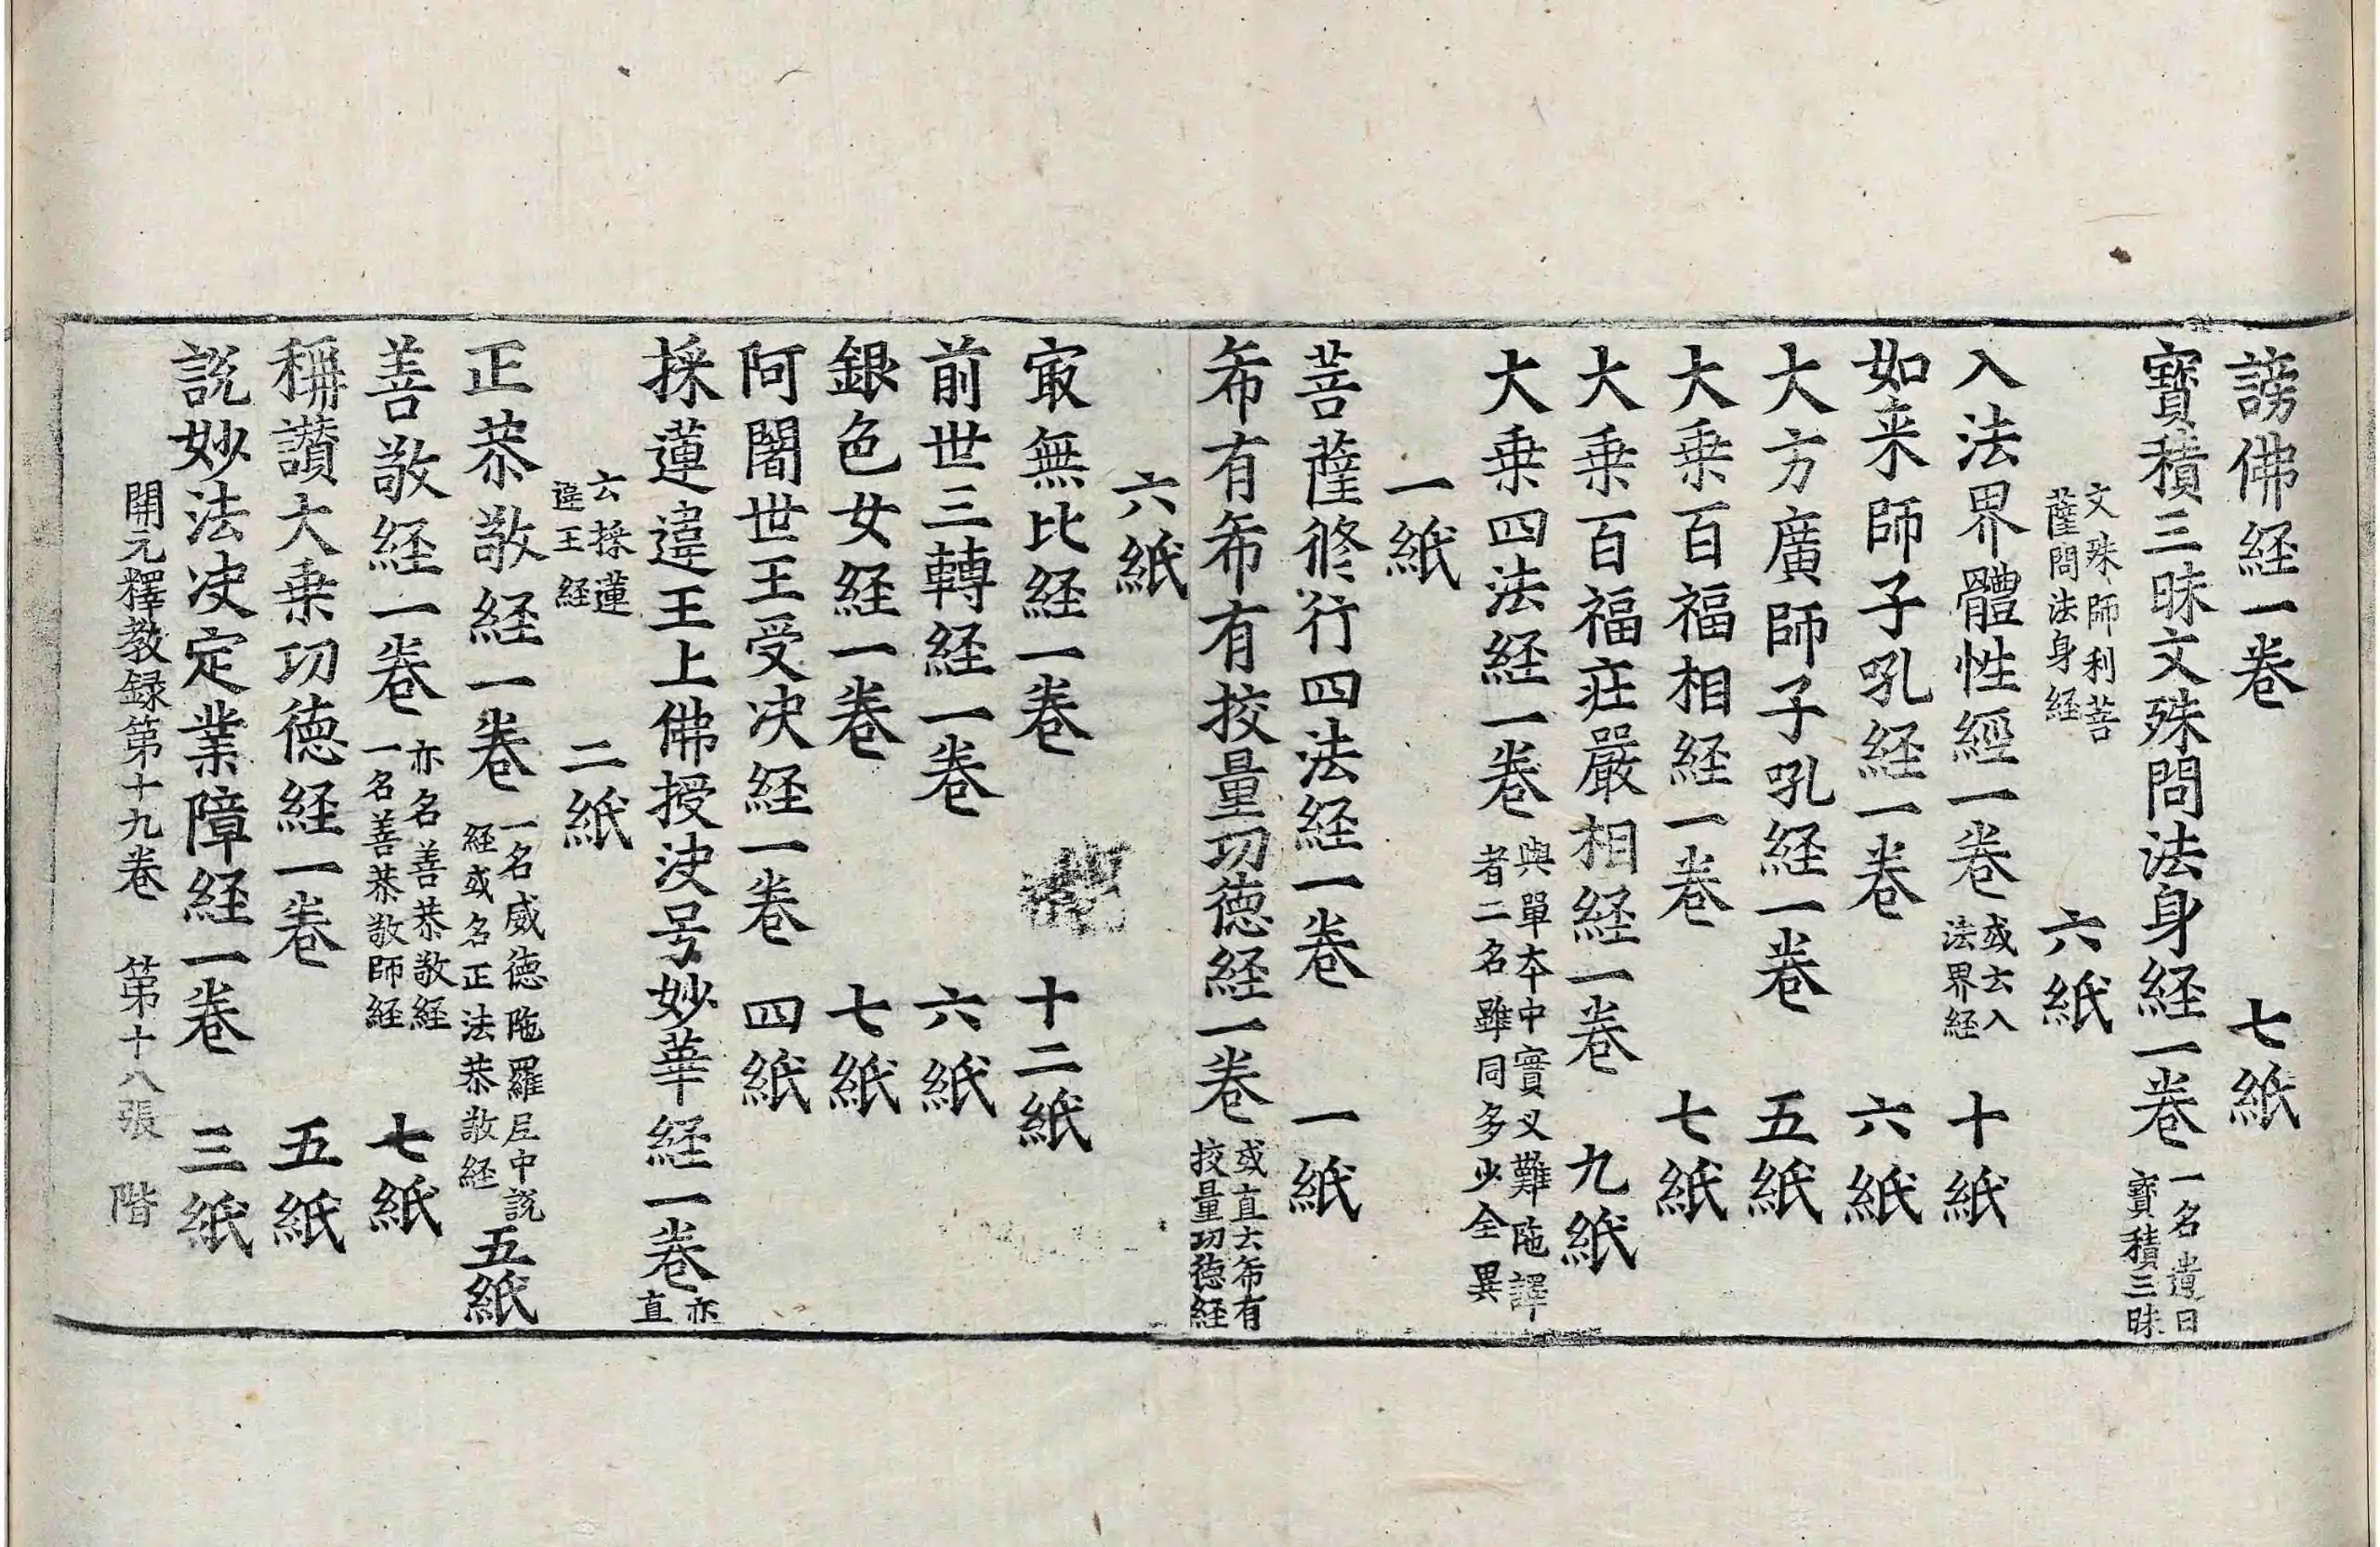 謗佛経一卷 七紙
寶積三昧文殊問法身経一卷 一名遺日寶積三昧
文殊師利菩薩問法身経 六紙
入法界體性經一卷 或云入法界経 十紙
如来師子吼経一卷 六紙
大方廣師子吼経一卷 五紙
大乗百福相経一卷 七紙
大乗百福莊嚴相経一卷 九紙
大乗四法経一卷 與單夲中實叉難陁譯者二名雖同多少全異
一紙
菩薩修行四法経一卷 一紙
希有希有挍量功德経一卷 或直云希有挍量功德経
六紙
㝡無比経一卷 十二紙
前世三轉経一卷 六紙
銀色女経一卷 七紙
阿闍世王受决経一卷 四紙
採蓮違王上佛授决号妙華経一卷 亦直
云採蓮違王経 二紙
正恭敬経一卷 一名威德陁羅尼中説経或名正法恭敬経 五紙
善敬経一卷 亦名善恭敬経一名善恭敬師経 七紙
稱讃大乗功德経一卷 五紙
説妙法决定業障経一卷 三紙
開元釋教録第十九卷 第十八張 階